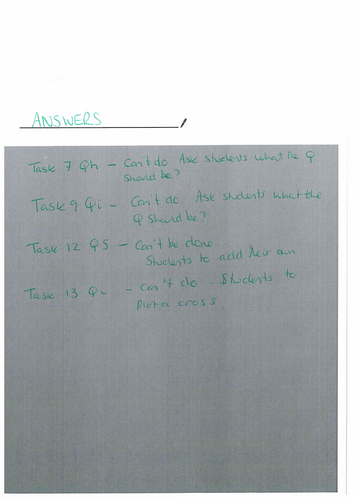 ANSWERS
Task 7 Qh - Can't do. Ask students what the Q
should be?
Task 9 Qi - Can't do. Ask students what the
Q should be?
Task 12 Q5 - Can't be done
Students to add their own
Task 13 Q - Can't do. Students to
a cross.